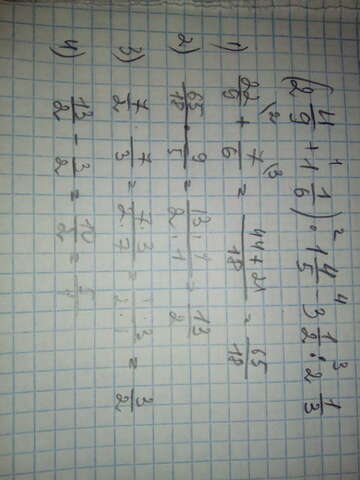 (2 4/9 + 1 1/6) · 1 4/5 - 3 1/2 : 2 1/3
1) 22/9 + 7/6 = 44+21/18 = 65/18
2) 65/18 · 9/5 = 13·1/2·1 = 13/2
3) 7/2 - 7/3 = 7·3/2·7 = 1·3/2·1 = 3/2
4) 13/2 - 3/2 = 10/2 =